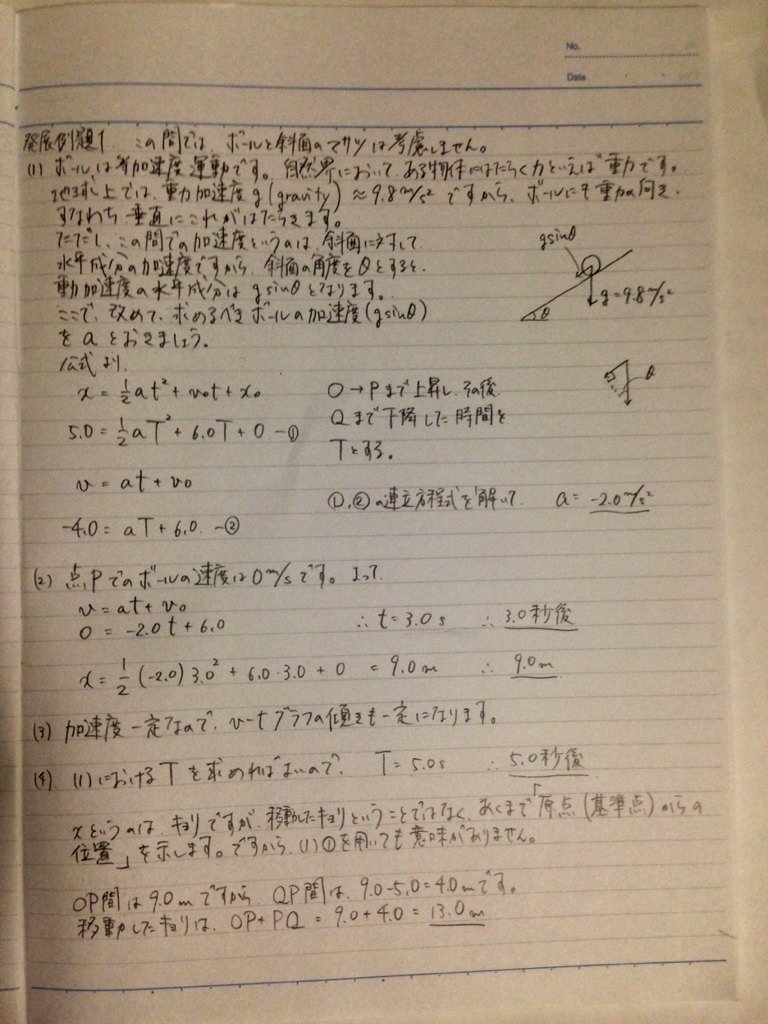 No.
Date
発展例題1. この問では、ボールと斜面のマサツは考慮しません。
(1) ボールは等加速度運動です。自然界において、ある物体にはたらく力といえば重力です。
地球上では、重力加速度g(gravity)≈9.8m/s²ですから、ボールにも重力の向き、
すなわち垂直にこれがはたらきます。
ただし、この問での加速度というのは、斜面に対して
水平成分の加速度ですから、斜面の角度をθとすると、
重力加速度の水平成分はgsinθとなります。
ここで、改めて、求めるべきボールの加速度(gsinθ)
をaとおきましょう。
gsinθ
g=9.8m/s²
θ
θ
公式より、
x = 1/2at² + v₀t + x₀
5.0 = 1/2aT² + 6.0T + 0 -①
v = at + v₀
-4.0 = aT + 6.0 -②
O→Pまで上昇し、その後
Qまで下降した時間を
Tとする。
①,②の連立方程式を解いて、 a = -2.0m/s²
(2) 点Pでのボールの速度は0m/sです。よって、
v = at + v₀
0 = -2.0t + 6.0 ∴t = 3.0s ∴3.0秒後
x = 1/2(-2.0)3.0² + 6.0・3.0 + 0 = 9.0m ∴9.0m
(3) 加速度一定なので、v-tグラフの傾きも一定になります。
(4) (1)におけるTを求めればよいので、 T = 5.0s ∴5.0秒後
xというのは、キョリですが、移動したキョリということではなく、あくまで「原点(基準点)からの
位置」を示します。ですから、(1)①を用いても意味がありません。
OP間は9.0mですから、QP間は、9.0-5.0=4.0mです。
移動したキョリは、OP+PQ = 9.0+4.0 = 13.0m